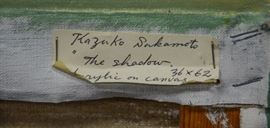 Kazuko Sakamoto
"The shadow.
rylic on canvas 36x62